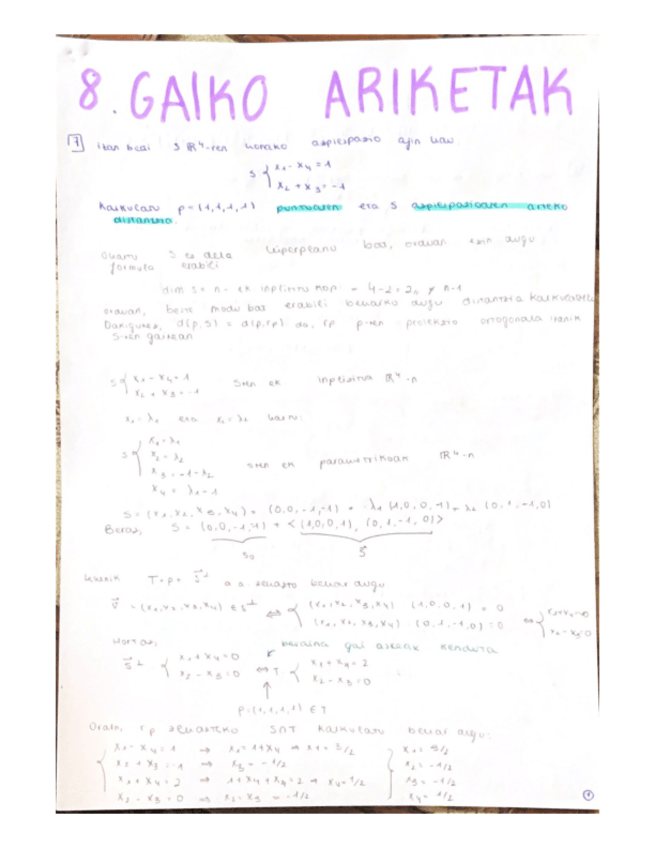 8. GAIKO ARIKETAK
7 Izan bedi S ℝ⁴-ren honako azpiespazio afin hau
S { x₁ - x₄ = 1
x₂ + x₃ = -1
Kalkulatu p = (1,1,1,1) puntuaren eta S azpiespazioaren arteko
distantzia.
Ohartu S ez dela hiperplano bat, orduan ezin dugu
formula erabili
dim S = n - ek inplizitu kop. = 4-2 = 2 ≠ n-1
orduan, beste modu bat erabili beharko dugu distantzia kalkulatzeko
Dakigunez, d(p,S) = d(p,rp) da, rp p-ren proiekzio ortogonala izanik
S-ren gainean
S { x₁ - x₄ = 1
x₂ + x₃ = -1
S-ren ek inplizituak ℝ⁴-n
x₁ = λ₁ eta x₂ = λ₂
S { x₁ = λ₁
x₂ = λ₂
x₃ = -1-λ₂
x₄ = λ₁-1
S-ren ek parametrikoak ℝ⁴-n
S = (x₁, x₂, x₃, x₄) = (0,0,-1,-1) + λ₁ (1,0,0,1) + λ₂ (0,1,-1,0)
Beraz, S = (0,0,-1,-1) + <(1,0,0,1), (0,1,-1,0)>
s₀ S⃗
T = p + S⃗^⊥ a.a. behar dugu
v⃗ = (x₁,x₂,x₃,x₄) ∈ S^⊥ ⇔ { (x₁,x₂,x₃,x₄) (1,0,0,1) = 0
(x₁,x₂,x₃,x₄) (0,1,-1,0) = 0 ⇔ { x₁+x₄=0
x₂-x₃=0
Hortaz, berdina gai askeak kenduta
S⃗^⊥ { x₁ + x₄ = 0
x₂ - x₃ = 0 ⇔ T { x₁ + x₄ = 2
x₂ - x₃ = 0
p = (1,1,1,1) ∈ T
Orain, rp S∩T kalkulatu behar dugu:
{ x₁ - x₄ = 1 ⇒ x₁ = 1+x₄ ⇒ x₁ = 3/2 } x₁ = 3/2
x₂ + x₃ = -1 ⇒ x₃ = -1/2 x₂ = -1/2
x₁ + x₄ = 2 ⇒ 1+x₄+x₄ = 2 ⇒ x₄ = 1/2 x₃ = -1/2
x₂ - x₃ = 0 ⇒ x₂ = x₃ = -1/2 x₄ = 1/2
1